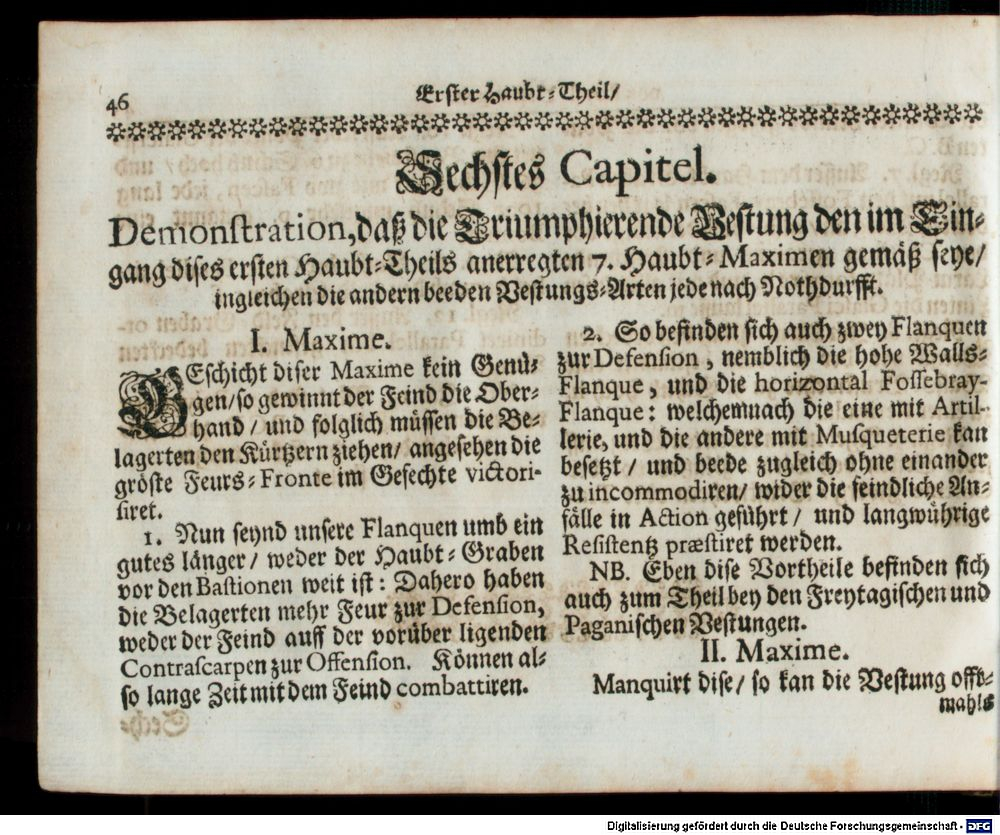 46
Erster Haubt-Theil/
Sechstes Capitel.
Demonstration, daß die Triumphierende Vestung den im Ein-
gang dises ersten Haubt-Theils anerregten 7. Haubt-Maximen gemäß seye/
ingleichen die andern beeden Vestungs-Arten jede nach Nothdurfft.
I. Maxime.
GEschicht diser Maxime kein Genü-
gen/ so gewinnt der Feind die Ober-
hand/ und folglich müssen die Be-
lagerten den Kürtzern ziehen/ angesehen die
gröste Feurs-Fronte im Gefechte victori-
siret.
1. Nun seynd unsere Flanquen umb ein
gutes länger/ weder der Haubt-Graben
vor den Bastionen weit ist: Dahero haben
die Belagerten mehr Feur zur Defension,
weder der Feind auff der vorüber ligenden
Contrascarpen zur Offension. Können al-
so lange Zeit mit dem Feind combattiren.
2. So befinden sich auch zwey Flanquen
zur Defension, nemblich die hohe Walls-
Flanque, und die horizontal Fossebray-
Flanque: welchemnach die eine mit Artil-
lerie, und die andere mit Musqueterie kan
besetzt/ und beede zugleich ohne einander
zu incommodiren/ wider die feindliche An-
fälle in Action geführt/ und langwührige
Resistentz præstiret werden.
NB. Eben dise Vortheile befinden sich
auch zum Theil bey den Freytagischen und
Paganischen Vestungen.
II. Maxime.
Manquirt dise/ so kan die Vestung offt-
mahls
Digitalisierung gefördert durch die Deutsche Forschungsgemeinschaft - DFG